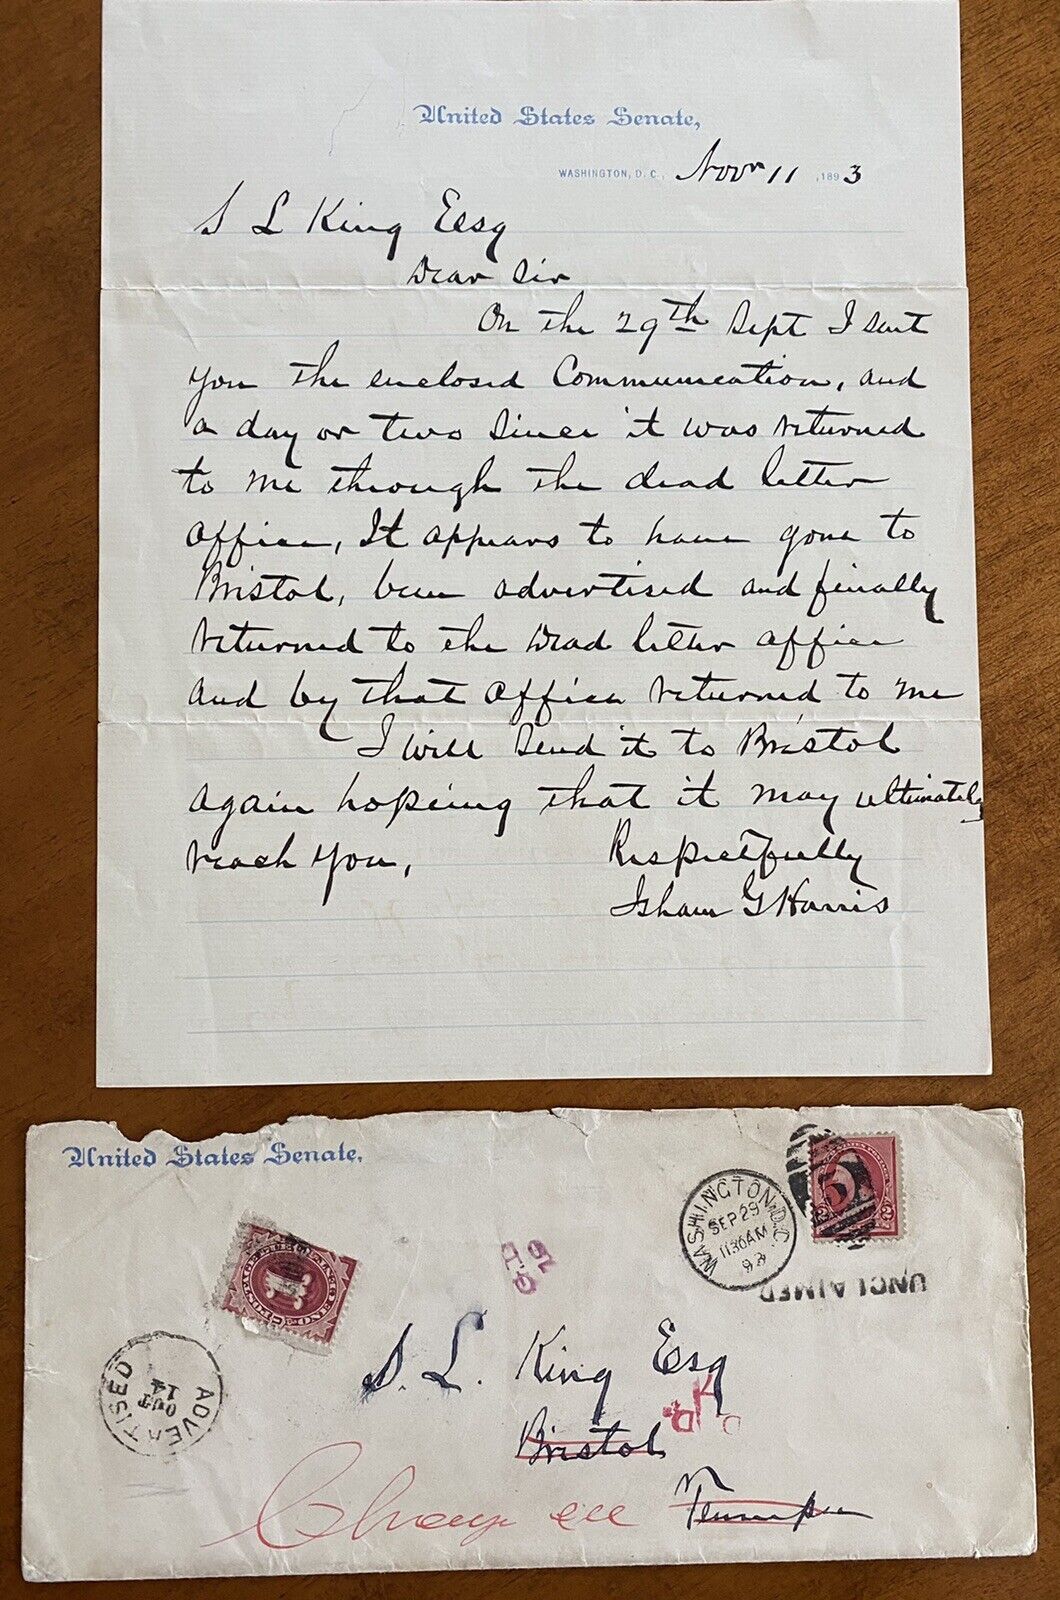 United States Senate,
WASHINGTON, D. C., Novr 11 , 1893
S L King Esq
Dear Sir
On the 29th Sept I sent
you the enclosed Communication, and
a day or two since it was returned
to me through the dead letter
office, It appears to have gone to
Bristol, been advertised and finally
returned to the Dead letter office
and by that office returned to me
I will send it to Bristol
again hopeing that it may ultimately
reach you,
Respectfully
Isham G Harris
United States Senate,
WASHINGTON, D.C.
SEP 29
1130AM
93
51
2 2
UNCLAIMED
POSTAGE DUE
1
ONE CENT
ADVERTISED
OCT
14
S. L. King Esq
Bristol
Tennessee